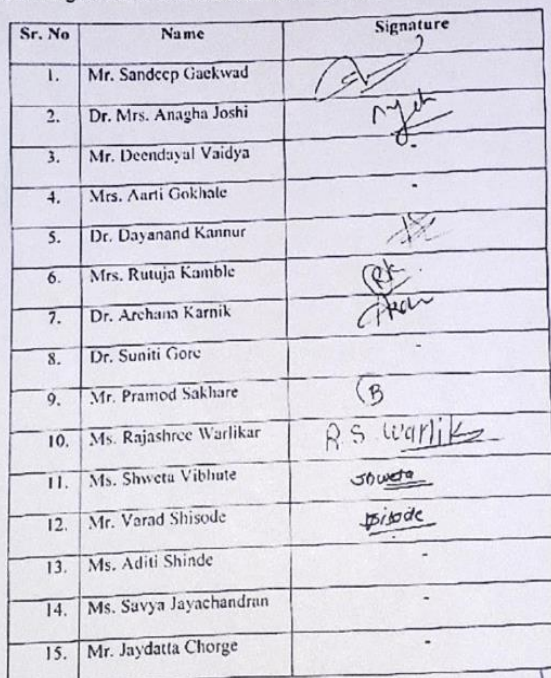 Sr. No Name Signature
1. Mr. Sandeep Gaekwad
2. Dr. Mrs. Anagha Joshi
3. Mr. Deendayal Vaidya -
4. Mrs. Aarti Gokhale -
5. Dr. Dayanand Kannur
6. Mrs. Rutuja Kamble RK
7. Dr. Archana Karnik
8. Dr. Suniti Gore -
9. Mr. Pramod Sakhare
10. Ms. Rajashree Warlikar R. S. Warlik
11. Ms. Shweta Vibhute Shweta
12. Mr. Varad Shisode
13. Ms. Aditi Shinde -
14. Ms. Savya Jayachandran -
15. Mr. Jaydatta Chorge -